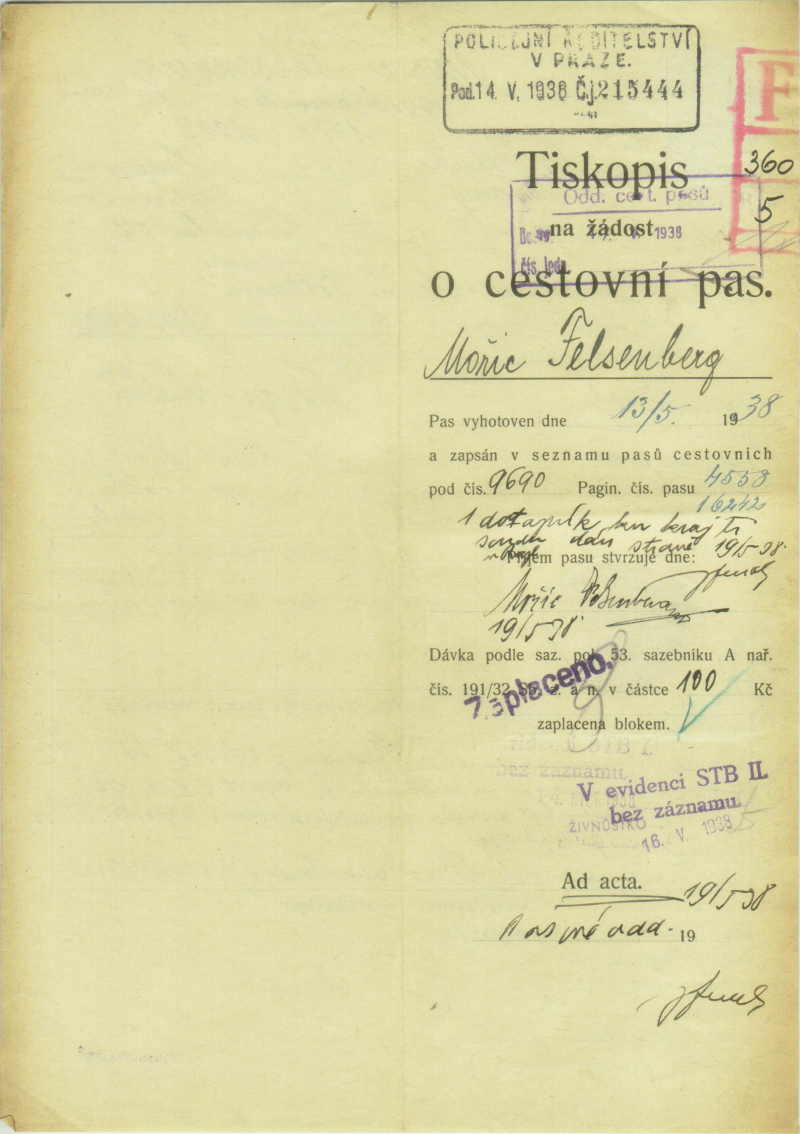 POLICEJNÍ ŘEDITELSTVÍ
V PRAZE.
Pod. 14. V. 1938 Č.j. 215444
F
360
5
Tiskopis
Odd. cest. pasů
na žádost
1938
čís. jedn.
o cestovní pas.
Mořic Felsenberg
Pas vyhotoven dne 13/5. 1938
a zapsán v seznamu pasů cestovních
pod čís. 9690 Pagin. čís. pasu 4558
16242
1 dotazník
19/5-38.
Příjem pasu stvrzuje dne:
Mořic Felsenberg
19/5-38
Dávka podle saz. pol. 53. sazebníku A nař.
čís. 191/32 Sb. z. a n. v částce 100 Kč
Zaplaceno.
zaplacena blokem.
STB I.
bez záznamu
V evidenci STB II.
bez záznamu.
ŽIVNOSTKO
16. V. 1938
Ad acta. 19/5-38
odd. 19